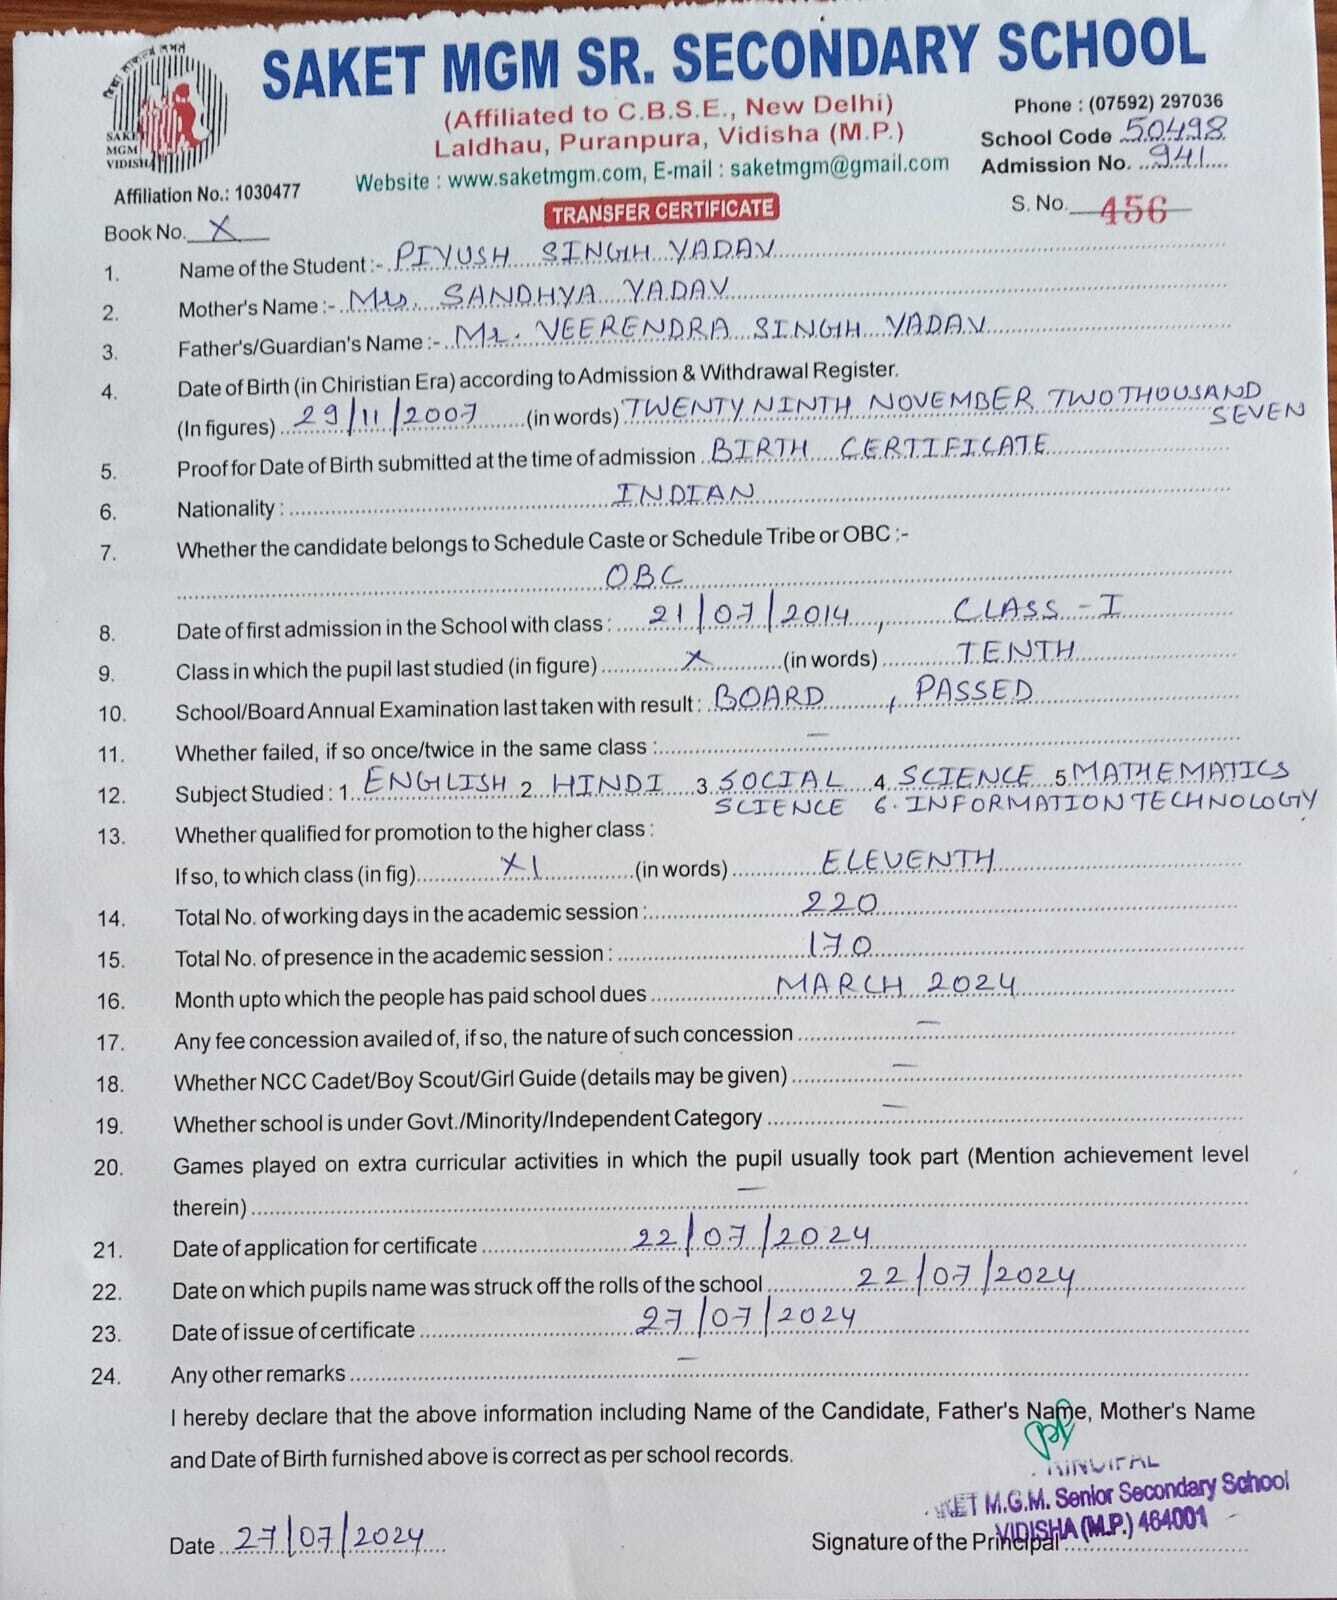 SAKET MGM SR. SECONDARY SCHOOL
(Affiliated to C.B.S.E., New Delhi)
Laldhau, Puranpura, Vidisha (M.P.)
Website : www.saketmgm.com, E-mail : saketmgm@gmail.com
Phone : (07592) 297036
School Code 50498
Admission No. 941
SAKET
MGM
VIDISHA
Affiliation No.: 1030477
Book No. X
TRANSFER CERTIFICATE
S. No. 456
1. Name of the Student :- PIYUSH SINGH YADAV
2. Mother's Name :- Mrs. SANDHYA YADAV
3. Father's/Guardian's Name :- Mr. VEERENDRA SINGH YADAV
4. Date of Birth (in Chiristian Era) according to Admission & Withdrawal Register.
(In figures) 29/11/2007 (in words) TWENTY NINTH NOVEMBER TWO THOUSAND
SEVEN
5. Proof for Date of Birth submitted at the time of admission BIRTH CERTIFICATE
6. Nationality : INDIAN
7. Whether the candidate belongs to Schedule Caste or Schedule Tribe or OBC :-
OBC
8. Date of first admission in the School with class : 21/07/2014, CLASS - I
9. Class in which the pupil last studied (in figure) X (in words) TENTH
10. School/Board Annual Examination last taken with result : BOARD , PASSED
11. Whether failed, if so once/twice in the same class : —
12. Subject Studied : 1. ENGLISH 2. HINDI 3. SOCIAL 4. SCIENCE 5. MATHEMATICS
SCIENCE 6. INFORMATION TECHNOLOGY
13. Whether qualified for promotion to the higher class :
If so, to which class (in fig) XI (in words) ELEVENTH
14. Total No. of working days in the academic session : 220
15. Total No. of presence in the academic session : 170
16. Month upto which the people has paid school dues MARCH 2024
17. Any fee concession availed of, if so, the nature of such concession —
18. Whether NCC Cadet/Boy Scout/Girl Guide (details may be given) —
19. Whether school is under Govt./Minority/Independent Category —
20. Games played on extra curricular activities in which the pupil usually took part (Mention achievement level
therein) —
21. Date of application for certificate 22/07/2024
22. Date on which pupils name was struck off the rolls of the school 22/07/2024
23. Date of issue of certificate 27/07/2024
24. Any other remarks —
I hereby declare that the above information including Name of the Candidate, Father's Name, Mother's Name
and Date of Birth furnished above is correct as per school records.
PRINCIPAL
SAKET M.G.M. Senior Secondary School
VIDISHA (M.P.) 464001
Date 27/07/2024
Signature of the Principal